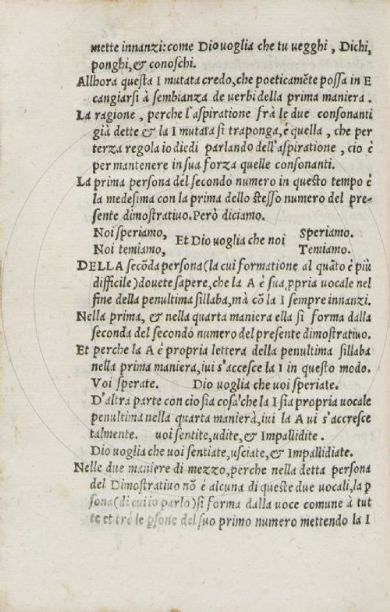 mette innanzi: come Dio uoglia che tu uegghi, Dichi,
ponghi, & conoschi.
Allhora questa I mutata credo, che poeticamẽte possa in E
cangiarsi à sembianza de uerbi della prima maniera.
La ragione, perche l'aspiratione frà le due consonanti
già dette & la I mutata si traponga, è quella, che per
terza regola io diedi parlando dell'aspiratione, cio è
per mantenere in sua forza quelle consonanti.
La prima persona del secondo numero in questo tempo è
la medesima con la prima dello stesso numero del pre-
sente dimostratiuo. Però diciamo.
Noi speriamo, Et Dio uoglia che noi Speriamo.
Noi temiamo, Temiamo.
DELLA secõda persona (la cui formatione al quãto è piu
difficile) douete sapere, che la A è sua ppria uocale nel
fine della penultima sillaba, mà cõ la I sempre innanzi.
Nella prima, & nella quarta maniera ella si forma dalla
seconda del secondo numero del presente dimostratiuo.
Et perche la A è propria lettera della penultima sillaba
nella prima maniera, iui s'accesce la I in questo modo.
Voi sperate. Dio uoglia che uoi speriate.
D'altra parte con cio sia cosa'che la I sia propria uocale
penultima nella quarta manierà, iui la A ui s'accresce
talmente. uoi sentite, udite, & Impallidite.
Dio uoglia che uoi sentiate, usciate, & Impallidiate.
Nelle due maniere di mezzo, perche nella detta persona
del Dimostratiuo nõ è alcuna di queste due uocali, la p
sona (di cui io parlo) si forma dalla uoce comune à tut
te et trè le psone del suo primo numero mettendo la I